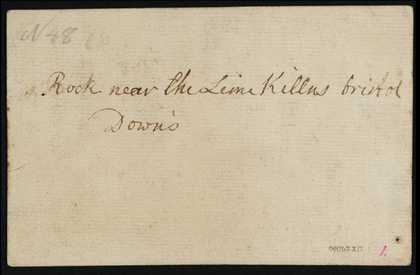 N 48
Rock near the Lime Killns bristol
Down's
1.